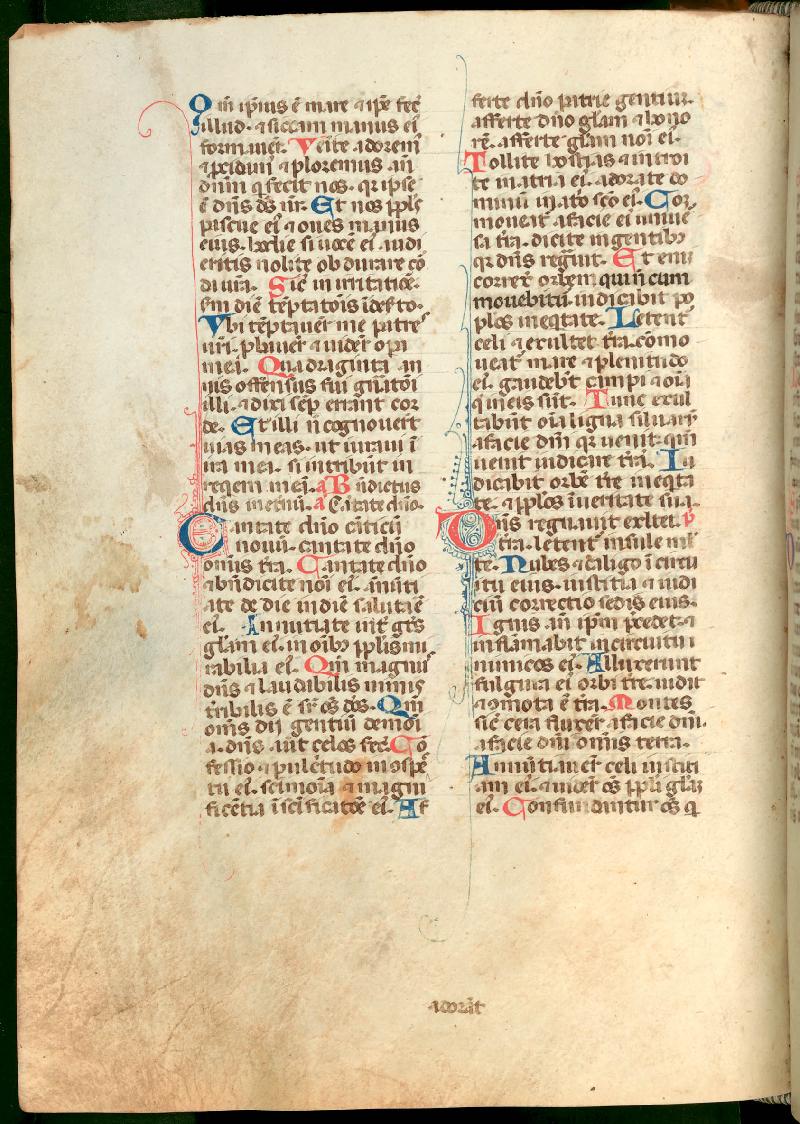 Qm̄ ip̄ius ē mare ⁊ ip̄e fec̄
illud · ⁊ siccam manus ei᷒
formauer̄t. Uēite adorem᷒
⁊ p̄cidam᷒ ⁊ ploremus añ
dnm̄ q̄ fecit nos · qr ip̄se
ē dn̄s ds̄ nr̄. Et nos ppl̄s
pascue ei᷒ ⁊ oues manus
eius. hodie si uocē ei᷒ audi
eritis nolite obdurare cō
da ur̄a. Sic̄ in irritatiōe.
sm̄ diē tēptatōis ī dēsto.
Ubi tēptauer̄ me patres
ur̄i · pbauer̄ ⁊ uider̄ opa
mea. Quadraginta an
nis offensus fui gn̄atōi
illi · ⁊ dixi sēp errant cor
de. Et illi n̄ cognouert̄
uias meas · ut iuraui ī
ira mea · si intrabūt in
reqem mea᷒. a Bn̄dictus
dn̄s in etnū. a Cātate dn̄o.
Cantate dn̄o cāticū
nouū · cantate dn̄o
om̄is tr̄a. Cantate dn̄o
⁊ bn̄dicite nōi ei᷒ · ānūti
ate de die in diē salutaē
ei᷒. Annūtiate int̄ gn̄s
glām ei᷒ · in oībꝫ pplīs mi
rabilia ei᷒. Qm̄ magnus
dn̄s ⁊ laudabilis nimis
tr̄ibilis ē sr̄ os̄ ds̄. Qm̄
om̄s dii gentiū demōi
a · dn̄s aūt celos fec̄. Cō
fessio ⁊ pulc̄tudo in ospē
tu ei᷒. sc̄imōia ⁊ magni
ficētia ī sc̄ificatōe ei᷒. Af
ferte dn̄o patrie gentium.
afferte dn̄o glām ⁊ hono
rē. afferte glām nōi ei᷒.
Tollite hostias ⁊ introi
te in atria ei᷒. adorate do
minū in ato sc̄o ei᷒. Com᷒
moueat᷒ a facie ei᷒ uniuē
sa tr̄a · dicite in gentibꝫ
qr dn̄s reg͛uit. Et eni᷒
correx̄ orbem qui n̄ cum
mouebitur᷒ · iudicabit po
plos in eqtate. Letent᷒
celi ⁊ exultet tr̄a · cōmo
ueat᷒ mare ⁊ plenitudo
ei᷒. gaudebt̄ campi ⁊ oīa
q̄ in eis sūt. Tunc exul
tabūt oīa ligna siluarū
a facie dn̄i qr uenit · qm̄
uenit iudicare tr̄a. Iu
dicabit orbē tr̄e in eqta
te · ⁊ pplōs ī ueritate sua.
Dn̄s regnauit exltet. p̄
tr̄a · letent᷒ insule ml̄
te. Nubes ⁊ caligo ī circu
itu eius · iustitia ⁊ iudi
ciū correctio sedis eius.
Ignis añ ip̄m p̄cedet · ⁊
inflamabit in circuitu
inimicos ei᷒. Alluxerunt
fulgura ei᷒ orbi tr̄e · uidit
⁊ ōmota ē tr̄a. Montes
sic̄ cera fluxer̄ a facie dn̄i.
a facie dn̄i omīs terra.
Annūtiauer̄t celi iustiti
am ei᷒. ⁊ uider̄ os̄ ppli glāꝫ
ei᷒. Confundantur os̄ q̄
adorāt